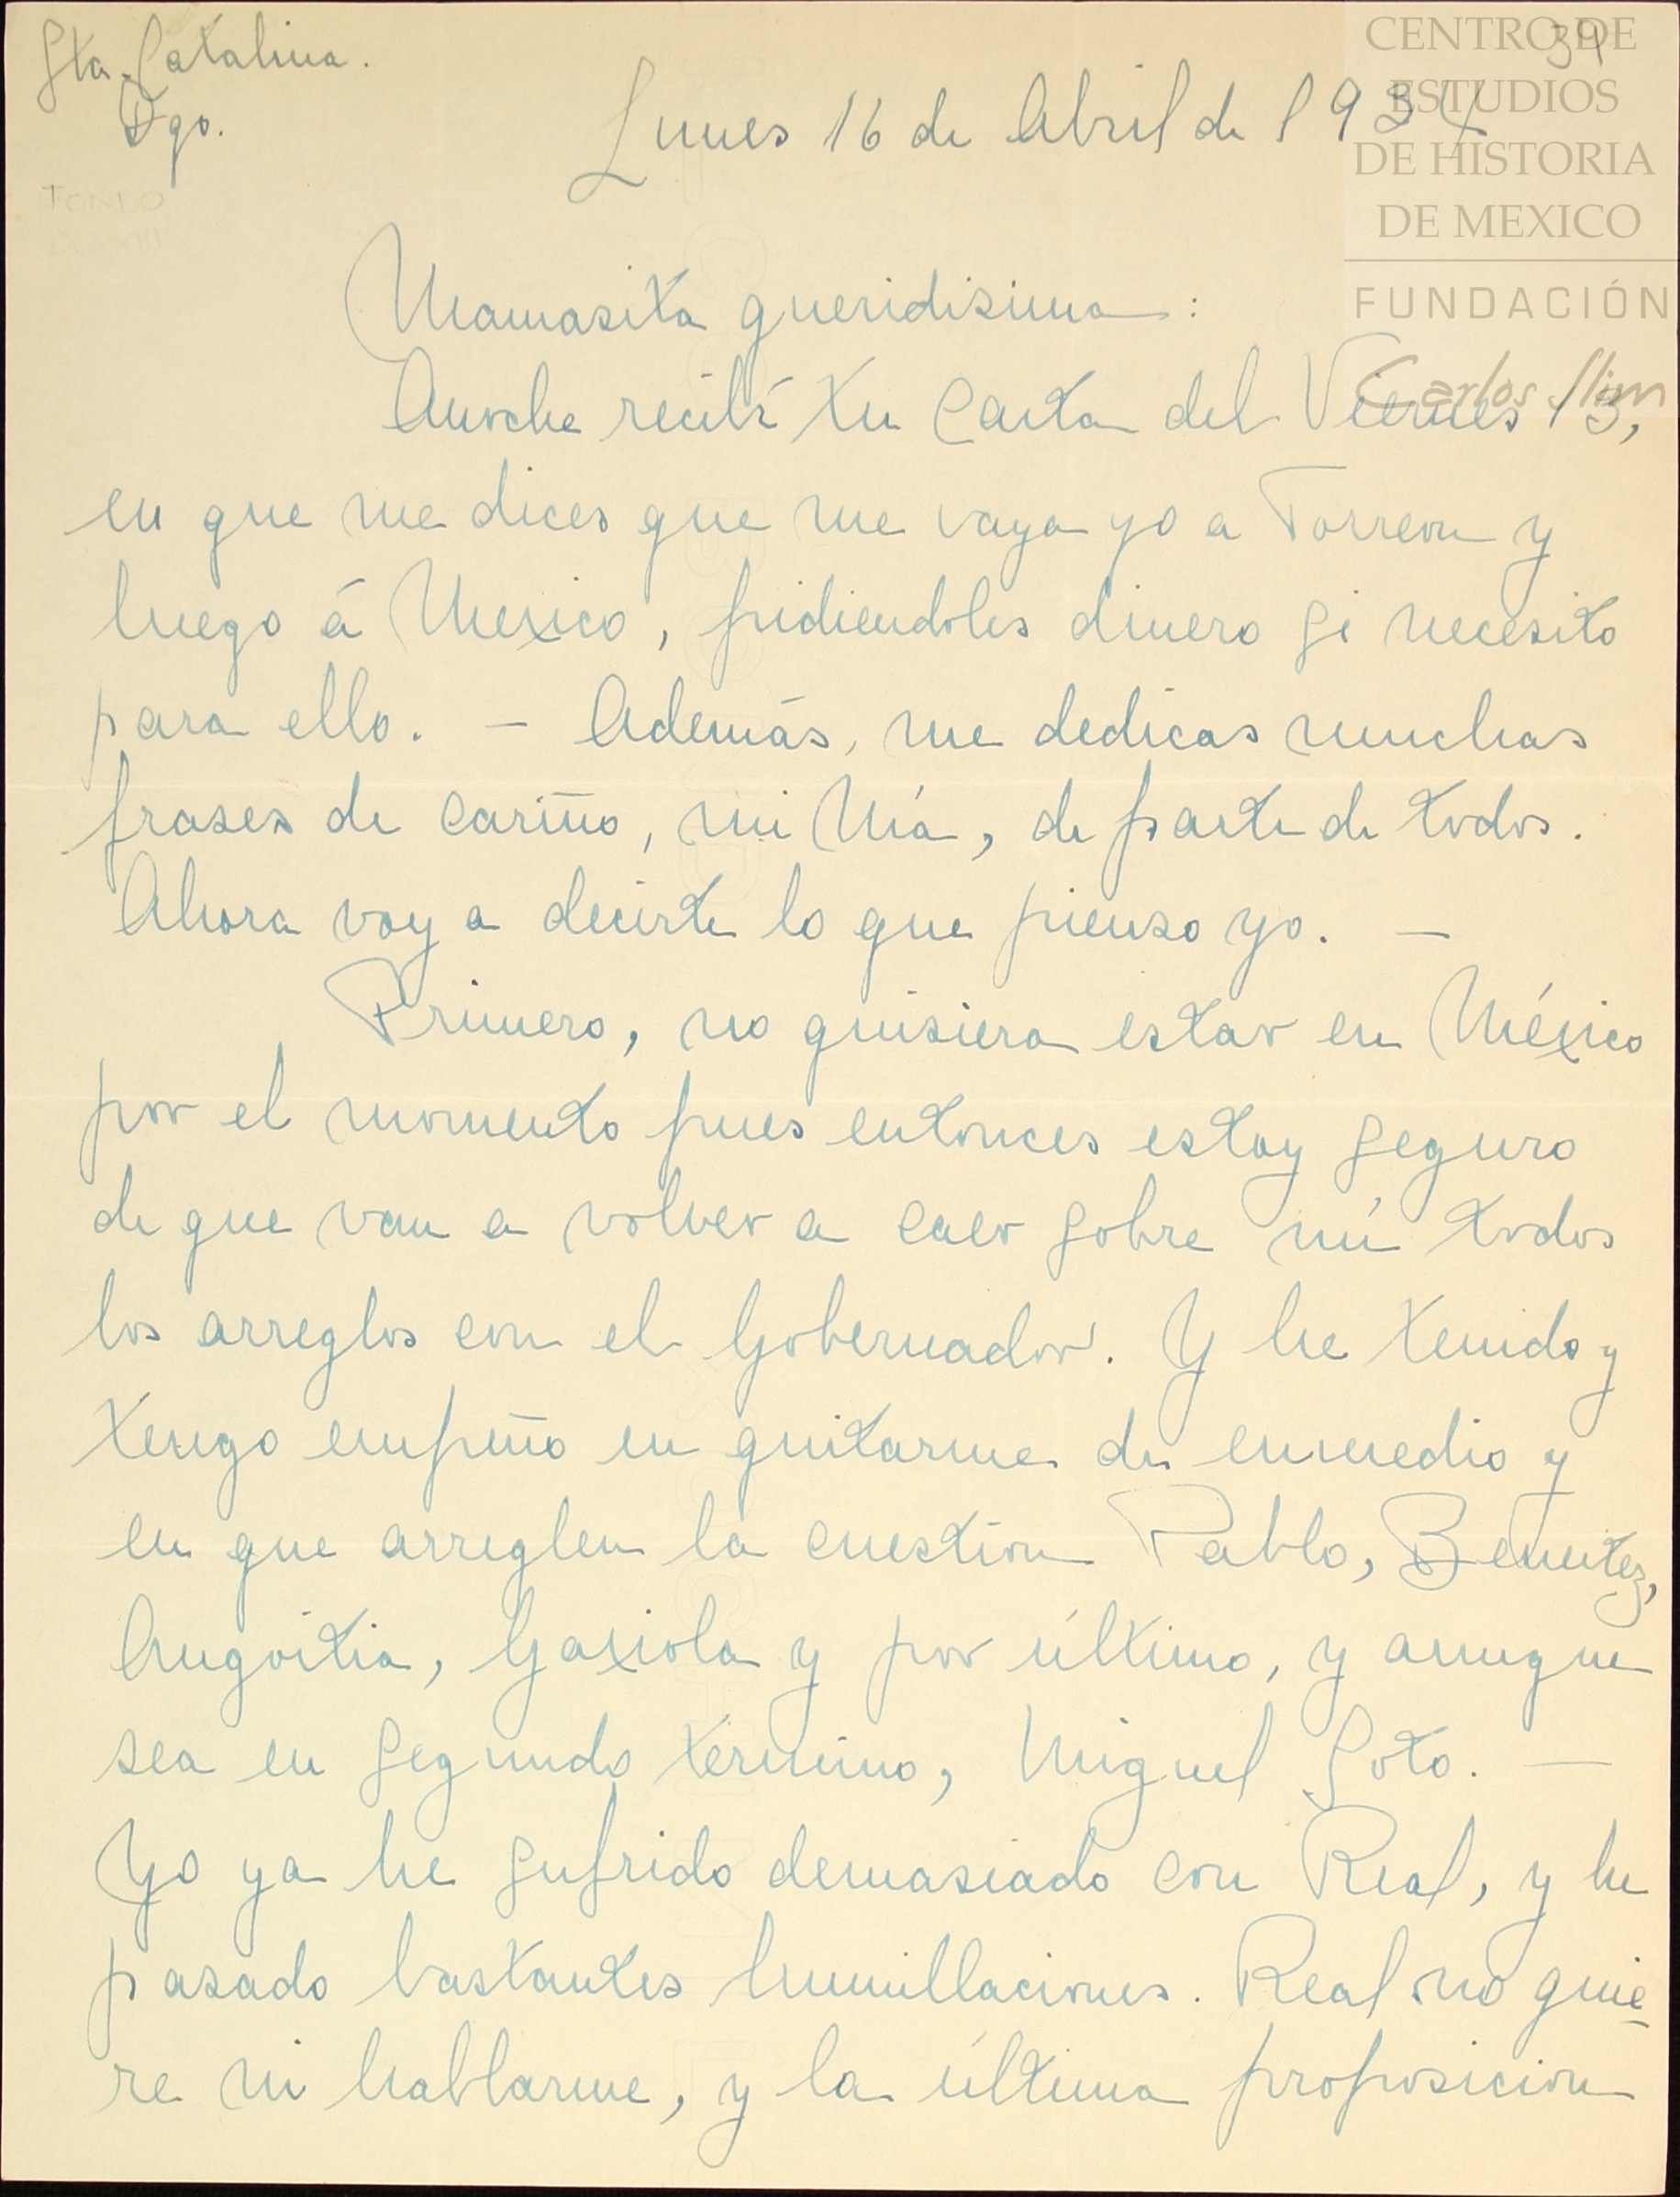 Sta. Catalina.
Dgo.
34
Lunes 16 de Abril de 1934
CENTRO DE
ESTUDIOS
DE HISTORIA
DE MEXICO
FUNDACIÓN
Carlos Slim
FONDO
Mamasita queridisima:
Anoche recibí tu carta del Viernes 13,
en que me dices que me vaya yo a Torreon y
luego á Mexico, pidiendoles dinero si necesito
para ello. — Además, me dedicas muchas
frases de cariño, mi Má, de parte de todos.
Ahora voy a decirte lo que pienso yo. —
Primero, no quisiera estar en México
por el momento pues entonces estoy seguro
de que van a volver a caer sobre mí todos
los arreglos con el Gobernador. Y he tenido y
tengo empeño en quitarme de enmedio y
en que arreglen la cuestion Pablo, Benitez,
Angoitia, Gaxiola y por último, y aunque
sea en segundo termino, Miguel Soto. —
Yo ya he sufrido demasiado con Real, y he
pasado bastantes humillaciones. Real no quie
re ni hablarme, y la última proposicion